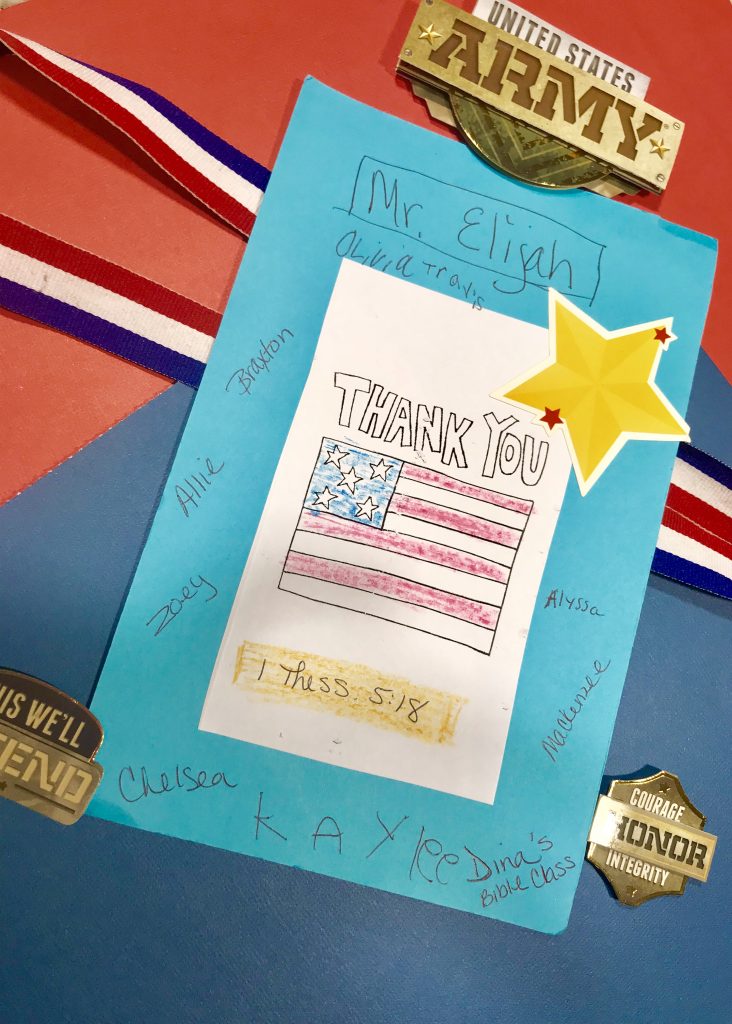 UNITED STATES
ARMY
Mr. Elijah
Olivia Travis
Braxton
THANK YOU
Allie
Zoey
Alyssa
1 Thess. 5:18
Mackenzee
WE'LL
Chelsea
KAYlee
Dina's
Bible Class
COURAGE
HONOR
INTEGRITY